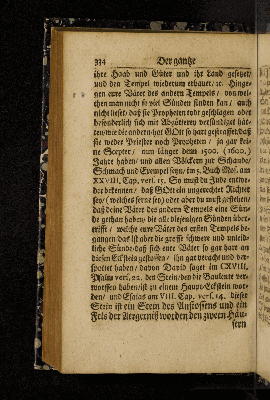 334 Der gantze
ihre Haab und Güter und ihr Land gesetzet/
und den Tempel wiederum erbauet/ ꝛc. Hinge-
gen eure Väter des andern Tempels / von wel-
chen man nicht so viel Sünden finden kan/ auch
nicht lieset/ daß sie Propheten todt geschlagen oder
sonderlich sich mit Abgötterey versündiget hät-
ten/ wie die andern/ hat GOtt so hart gestraffet/ daß
sie weder Priester noch Propheten / ja gar kei-
ne Scepter/ nun länger denn 1500. (1600.)
Jahre haben/ und allen Völckern zur Schande/
Schmach und Exempel seyn/ im 5. Buch Mos. am
XXVIII. Cap. vers. 37. So must du Jude entwe-
der bekennen/ daß GOtt ein ungerechter Richter
sey/ (welches ferne sey) oder aber du must gestehen/
daß deine Väter des andern Tempels eine Sün-
de gethan haben/ die alle diejenigen Sünden über-
trifft / welche eure Väter des ersten Tempels be-
gangen/ das ist aber die grosse schwere und unleid-
liche Sünde/ daß sich eure Väter so gar hart an
diesen Eckstein gestossen/ ihn gar veracht und ver-
spottet haben / davon David saget im CXVIII.
Psalm vers. 22. den Stein/ den die Bauleute ver-
worffen haben/ ist zu einem Haupt-Eckstein wor-
den/ und Esaias am VIII. Cap. vers. 14. dieser
Stein ist ein Stein des Anstossens und ein
Fels der Aergerniß worden den zweyen Häu-
sern